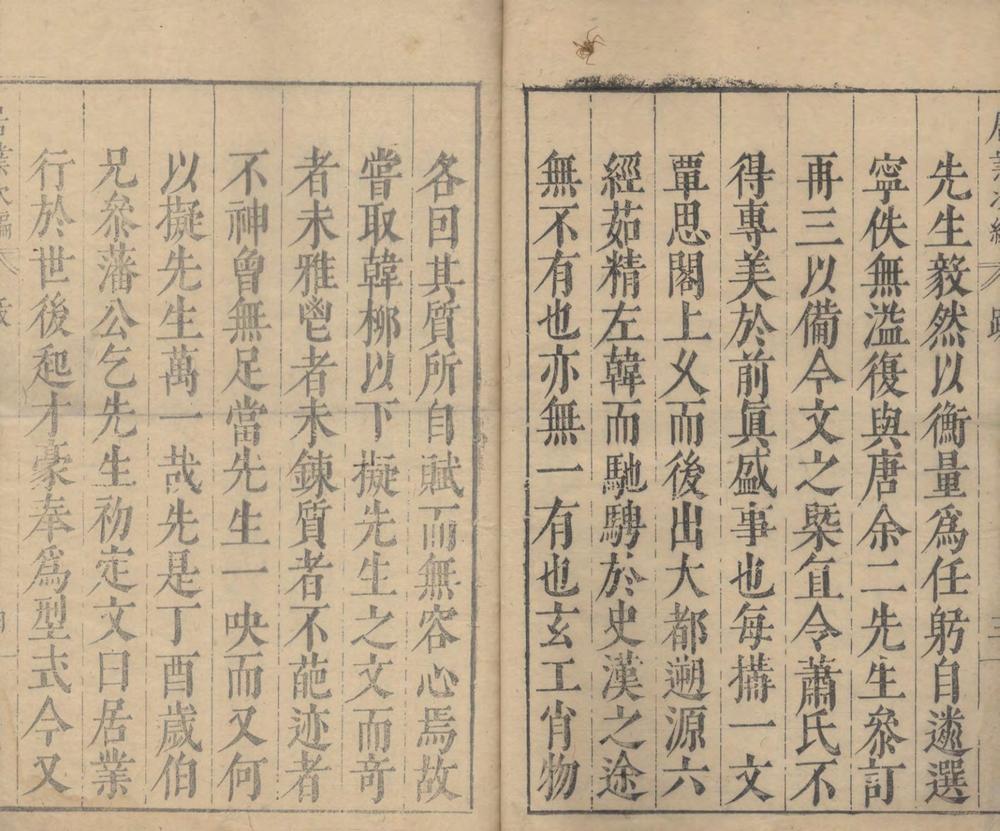 先生毅然以衡量爲任躬自遴選
寧佚無濫復與唐余二先生叅訂
再三以備今文之槩𥄂令蕭氏不
得專美於前眞盛事也每搆一文
覃思閣上乆而後出大都遡源六
經茹精左韓而馳騁於史漢之途
無不有也亦無一有也玄工肖物
各回其質所自賦而無容心焉故
嘗取韓柳以下擬先生之文而竒
者未雅鬯者未鍊質者不葩迹者
不神曾無足當先生一吷而又何
以擬先生萬一哉先是丁酉歲伯
兄叅藩公乞先生初定文曰居業
行於世後起才豪奉爲型式今又
居業次編